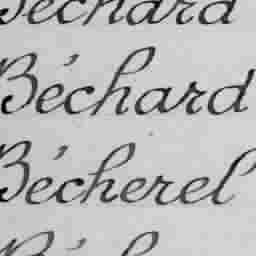 Béchard
Béchard
Bécherel